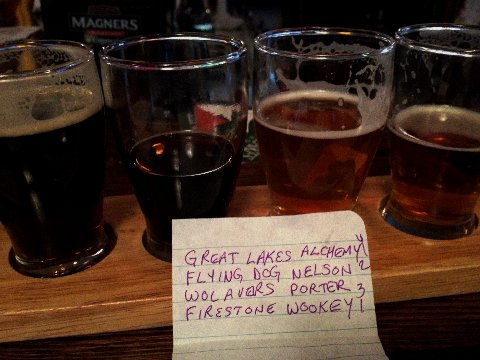 MAGNERS
GREAT LAKES ALCHEMY 4
FLYING DOG NELSON 2
WOLAVERS PORTER 3
FIRESTONE WOOKEY 1